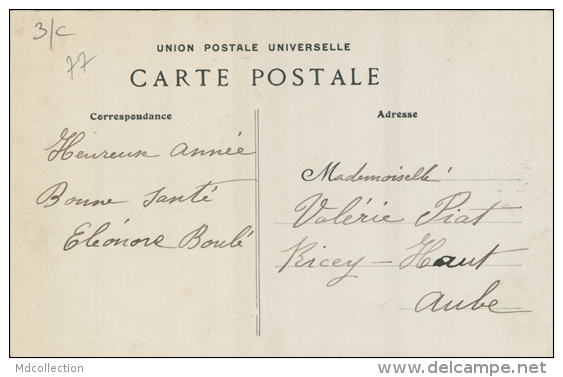 3/c
77
UNION POSTALE UNIVERSELLE
CARTE POSTALE
Correspondance
Adresse
Heureuse année
Bonne santé
Eléonore Boulé
Mademoiselle
Valérie Piat
Ricey - Haut
Aube
Mdcollection
delcampe.net